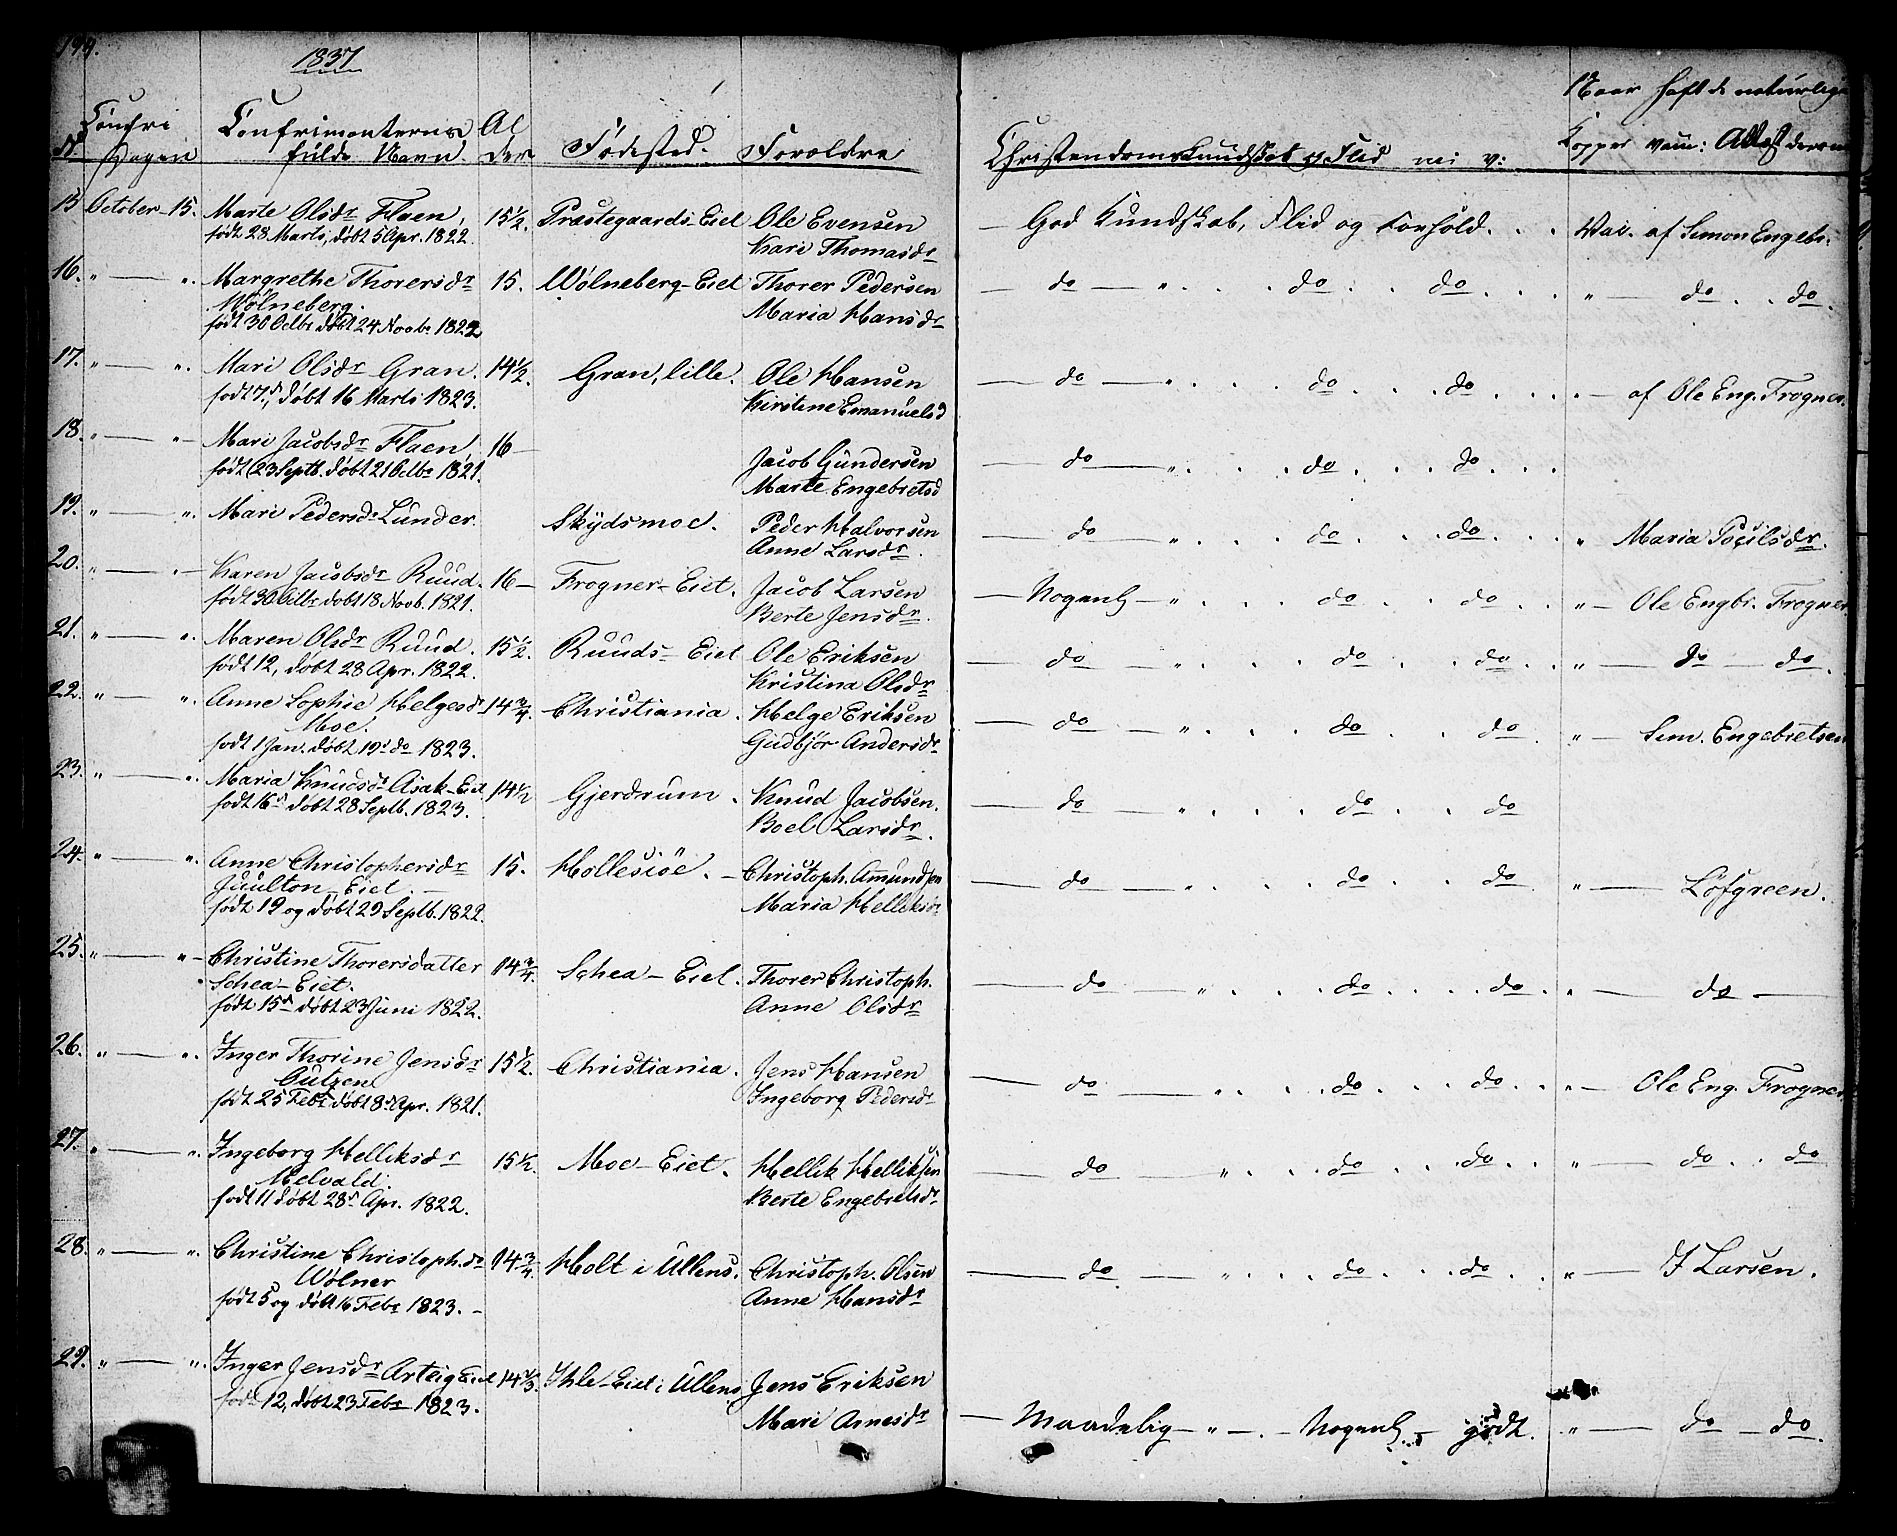 1837
Confri
Confrimanternes Al
fulde Navn. der Fødested. Foreldre
Christendomskundskab og Flid m: v:
Naar haft de naturlige
Kopper eller vaccin: Attest derom
15 October 15. Marte Olsdr Flaen, 15½. Præstegaards-Eiet Ole Evensen — God Kundskab, Flid og Forhold. . . Vac. af Simon Engebr.
født 28 Marts, døbt 5 Apr. 1822. Kari Thomasdr
16. " — ". Margrethe Thorersdr 15. Wølneberg-Eiet Thorer Pedersen — do — " . . . do . . do . . . " — do . . do.
Wølneberg. Maria Hansdr
født 30 Octbr døbt 24 Novbr 1822
17. " — ". Mari Olsdr Gran. 14½. Gran, lille. Ole Hansen — do — " . . . do . . do . . . " — af Ole Eng. Frogner.
født 7d, døbt 16 Marts 1823. Kirstine Emanuelsd
18. " — " Mari Jacobsdr Flaen, 16 — Jacob Gundersen — do — " . . . do . . do . . .
født 23 Septb. døbt 21 Octbr 1821. Marte Engebretsd
19. " — ". Mari Pedersdr Lunder. Skydsmoe. Peder Halvorsen — do — " . . . do . . do . . . " Maria Poulsdr.
Anne Larsdr.
20. " — " Karen Jacobsdr Ruud. 16 — Frogner-Eiet. Jacob Larsen — Nogenl — " . . . do . . do . . " — Ole Engbr. Frogner
født 30 Octbr døbt 18 Novb. 1821. Berte Jensdr.
21. " — ". Maren Olsdr Ruud. 15½. Ruuds-Eiet Ole Eriksen — do — " . . . do . . do . . " — do — do.
født 12, døbt 28 Apr. 1822. Kristina Olsdr
22. " — ". Anne Sophie Helgesdr 14¾. Christiania. Helge Eriksen — do — " . . . do . . do . " — Sim. Engebretsen
Moe. Gudbjør Andersdr
født 1 Jan. døbt 19d do 1823.
23. " — ". Maria Knudsdr Asak-Eiet 14½ Gjerdrum. Knud Jacobsen. — do — " . . . do . . do
født 16d døbt 28 Septb. 1823. Boel Larsdr.
24. " — ". Anne Christophersdr 15. Hollesiøe. — Christoph. Amundsen — do — " . . . do . . do " — Løfgreen.
Juulton-Eiet. — Maria Helliksdr
født 19 og døbt 29 Septb. 1822.
25. " — " Christine Thorersdatter 14¾. Schea-Eiet. Thorer Christoph. — do — " . . . do . . . . do. " — do —
Schea-Eiet. Anne Olsdr
født 15d døbt 23 Juni 1822.
26. " — ". Inger Thorine Jensdr 15½. Christiania. Jens Hansen — do — " . . . do . . . do. . " — Ole Eng. Frogner
Ingeborg Pedersdr
født 25 Febr døbt 8d Apr. 1821.
27. " — ". Ingeborg Helliksdr 15½. Moe-Eiet. Hellik Helliksen — do — " . . . do . . . do. . " — do . . do
Melvald. Berte Engebretsdr
født 11 døbt 28d Apr. 1822.
28. " — ". Christine Christoph.dr 14¾. Holt i Ullens. Christoph. Olsen — do — " . . . do . . . do . . " — J Larsen.
Wølner Anne Hansdr
født 5 og døbt 16 Febr 1823. —
29. " — ". Inger Jensdr Arteig Eiet 14⅔. Ihle-Eiet i Ullens Jens Eriksen
født 12, døbt 23 Febr 1823. Mari Arnesdr — Maadelig — " — . — Nogenl — godt. " — do — do.